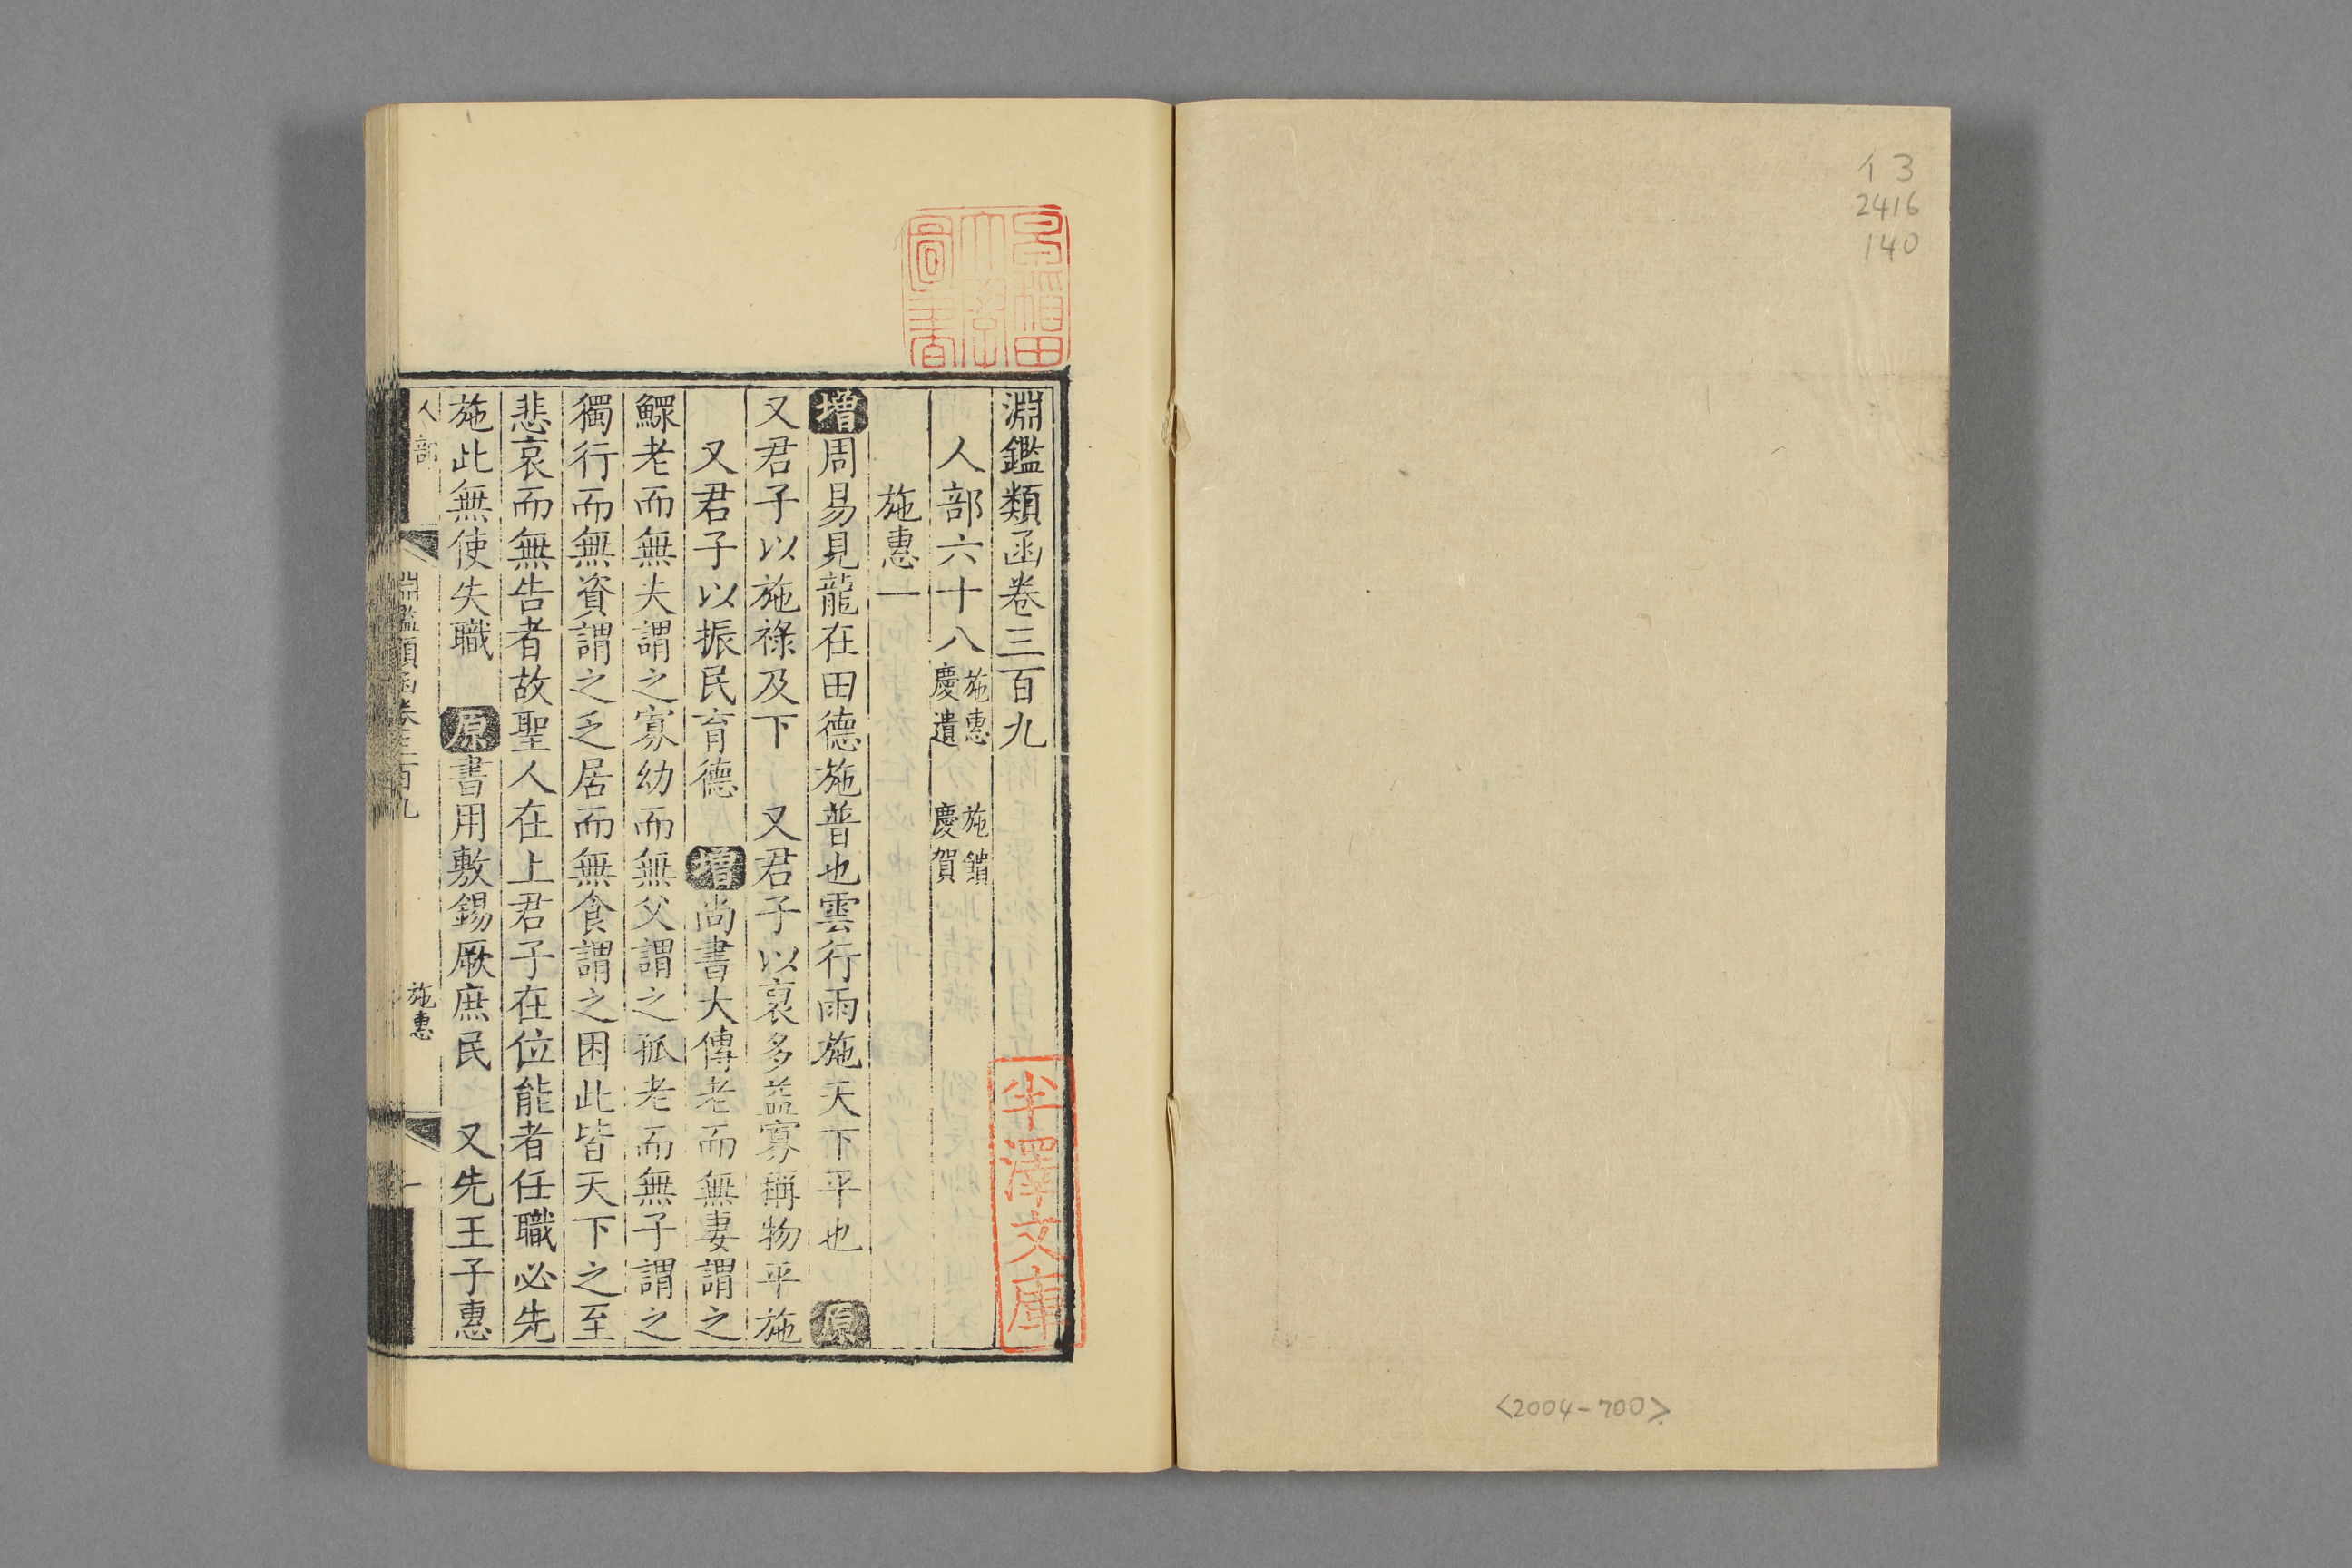 イ3
2416
140
<2004-700>
早稲田
大學
圖書
半澤文庫
淵鑑類函卷三百九
人部六十八 施惠 施饋 慶遺 慶賀
施惠一
增周易見龍在田德施普也雲行雨施天下平也 原
又君子以施祿及下 又君子以裒多益寡稱物平施
又君子以振民育德 增尚書大傳老而無妻謂之
鰥老而無夫謂之寡幼而無父謂之孤老而無子謂之
獨行而無資謂之乏居而無食謂之困此皆天下之至
悲哀而無告者故聖人在上君子在位能者任職必先
施此無使失職 原書用敷錫厥庶民 又先王子惠
人部 淵鑑類函卷三百九 施惠 一